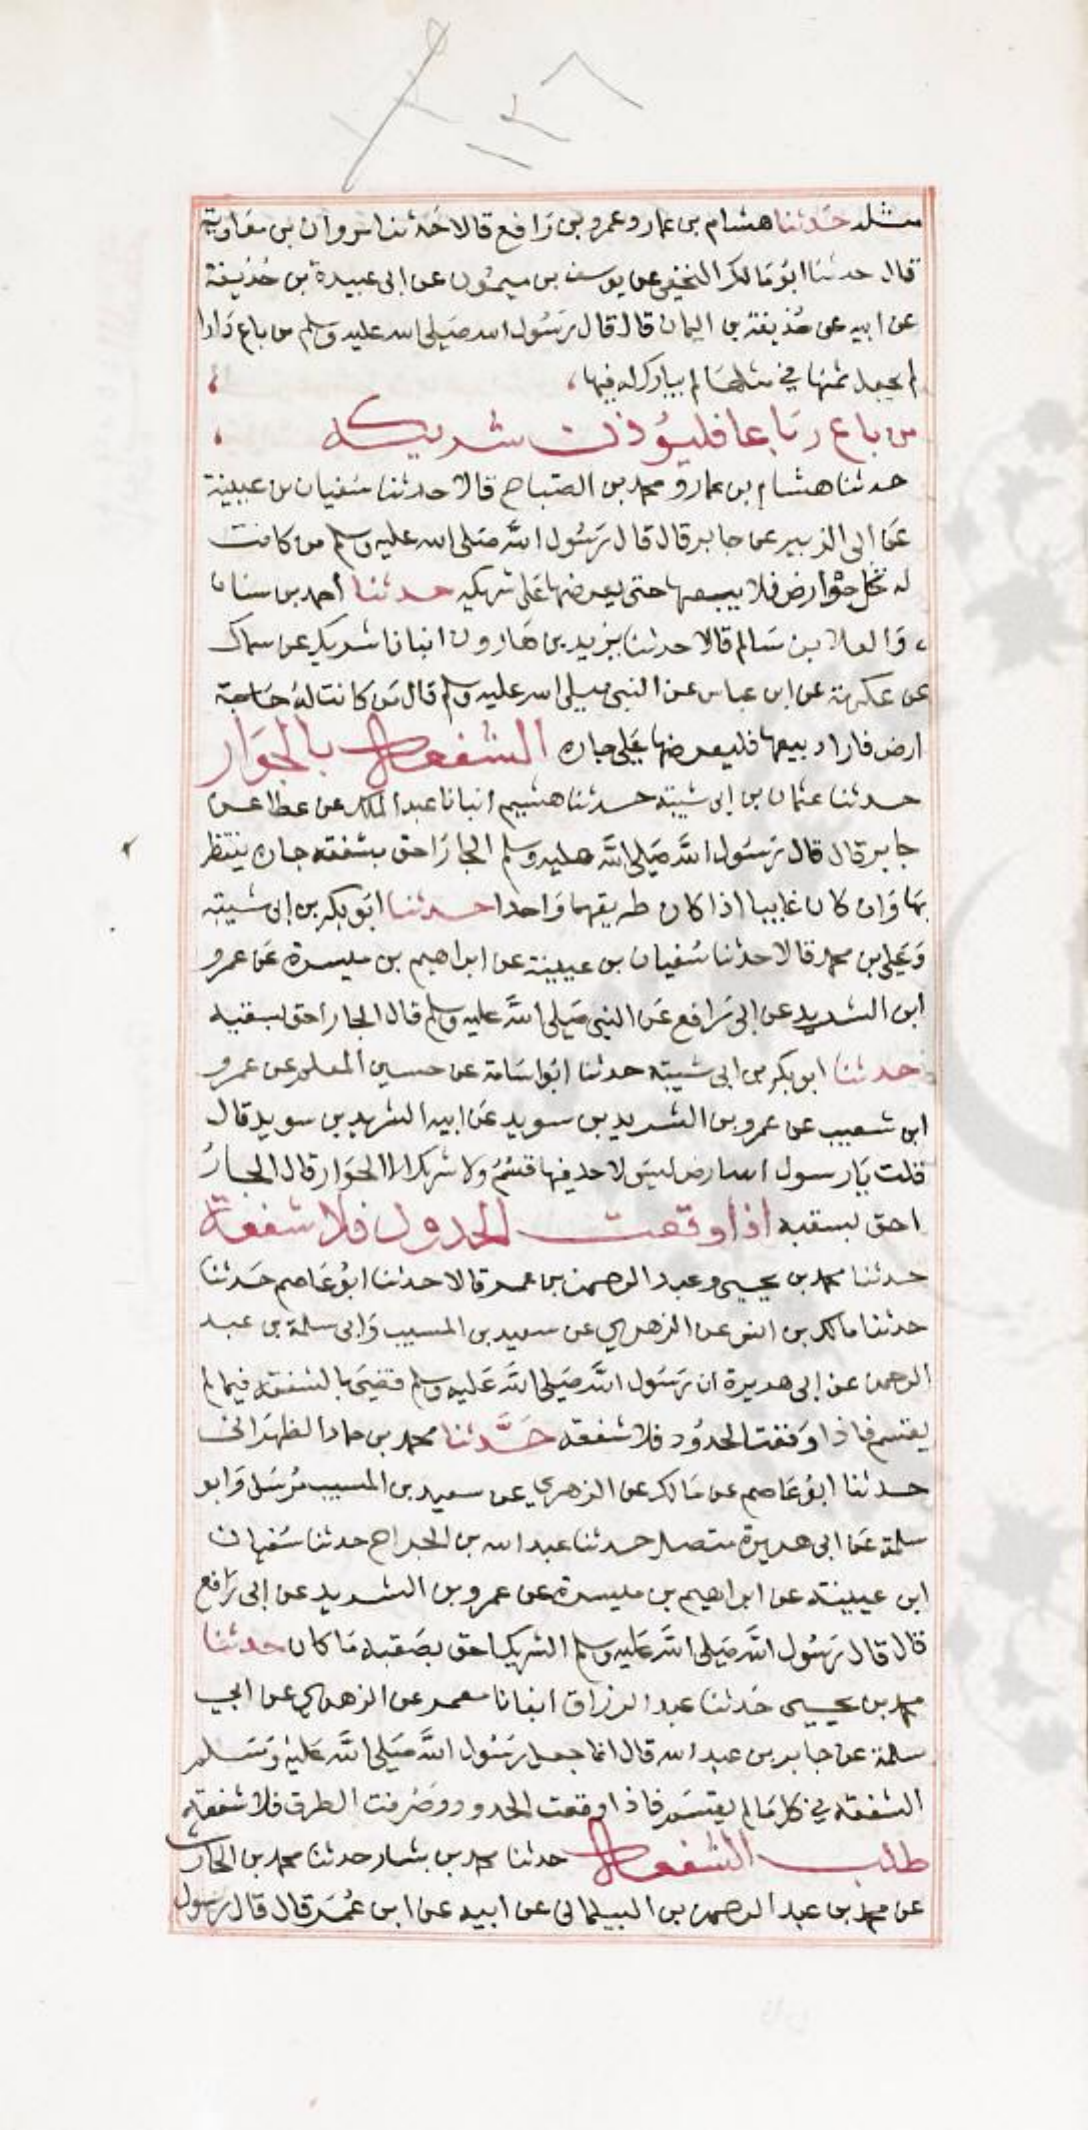 ١٣٦
مثله حدثنا هشام بن عمار وعمرو بن رافع قالا حدثنا مروان بن معاوية
قال حدثنا ابو مالك النخعي عن يوسف بن ميمون عن ابي عبيدة بن حذيفة
عن ابيه عن حذيفة بن اليمان قال قال رسول الله صلى الله عليه وسلم من باع دارا
لم يجعل ثمنها في مثلها لم يبارك له فيها
من باع رباعا فليؤذن شريكه
حدثنا هشام بن عمار ومحمد بن الصباح قالا حدثنا سفيان بن عيينة
عن ابى الزبير عن جابر قال قال رسول الله صلى الله عليه وسلم من كانت
له نخل او ارض فلا يبيعها حتى يعرضها على شريكه حدثنا احمد بن سنان
والعلا بن سالم قالا حدثنا يزيد بن هارون انبانا شريك عن سماك
عن عكرمة عن ابن عباس عن النبي صلى الله عليه وسلم قال من كانت له حاجة
ارض فاراد بيعها فليعرضها على جاره الشفعة بالجوار
حدثنا عثمان بن ابى شيبة حدثنا هشيم انبانا عبد الملك عن عطا عن
جابر قال قال رسول الله صلى الله عليه وسلم الجار احق بشفعة جاره ينتظر
بها وان كان غايبا اذا كان طريقهما واحدا حدثنا ابو بكر بن ابى شيبة
وعلى بن محمد قالا حدثنا سفيان بن عيينة عن ابراهيم بن ميسرة عن عمرو
ابن الشريد عن ابى رافع عن النبي صلى الله عليه وسلم قال الجار احق بسقبه
حدثنا ابو بكر بن ابى شيبة حدثنا ابو اسامة عن حسين المعلم عن عمرو
ابن شعيب عن عمرو بن الشريد بن سويد عن ابيه الشريد بن سويد قال
قلت يا رسول الله ارض ليس لاحد فيها قسم ولا شرك الا الجوار قال الجار
احق بسقبه اذا وقعت الحدود فلا شفعة
حدثنا محمد بن يحيى وعبد الرحمن بن عمر قالا حدثنا ابو عاصم حدثنا
حدثنا مالك بن انس عن الزهري عن سعيد بن المسيب وابى سلمة بن عبد
الرحمن عن ابى هريرة ان رسول الله صلى الله عليه وسلم قضى بالشفعة فيما لم
يقسم فاذا وقعت الحدود فلا شفعة حدثنا محمد بن حماد الظهرانى
حدثنا ابو عاصم عن مالك عن الزهري عن سعيد بن المسيب مرسل وابو
سلمة عن ابى هريرة متصل حدثنا عبد الله بن الجراح حدثنا سفيان
ابن عيينة عن ابراهيم بن ميسرة عن عمرو بن الشريد عن ابى رافع
قال قال رسول الله صلى الله عليه وسلم الشريك احق بصقبه ما كان حدثنا
محمد بن يحيى حدثنا عبد الرزاق انبانا معمر عن الزهري عن ابي
سلمة عن جابر بن عبد الله قال انما جعل رسول الله صلى الله عليه وسلم
الشفعة في كل ما لم يقسم فاذا وقعت الحدود وصرفت الطرق فلا شفعة
طلب الشفعة حدثنا محمد بن بشار حدثنا محمد بن الحارث
عن محمد بن عبد الرحمن بن البيلمانى عن ابيه عن ابن عمر قال قال رسول